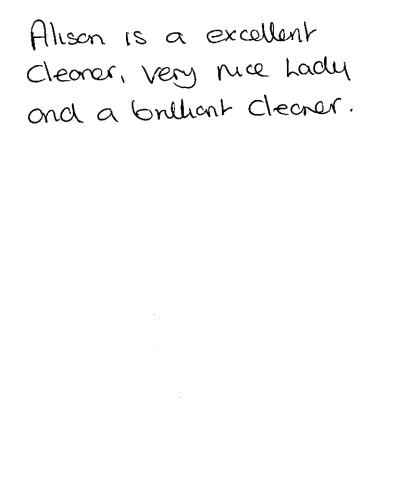 Alison is a excellent
Cleaner, very nice Lady
and a brilliant Cleaner.